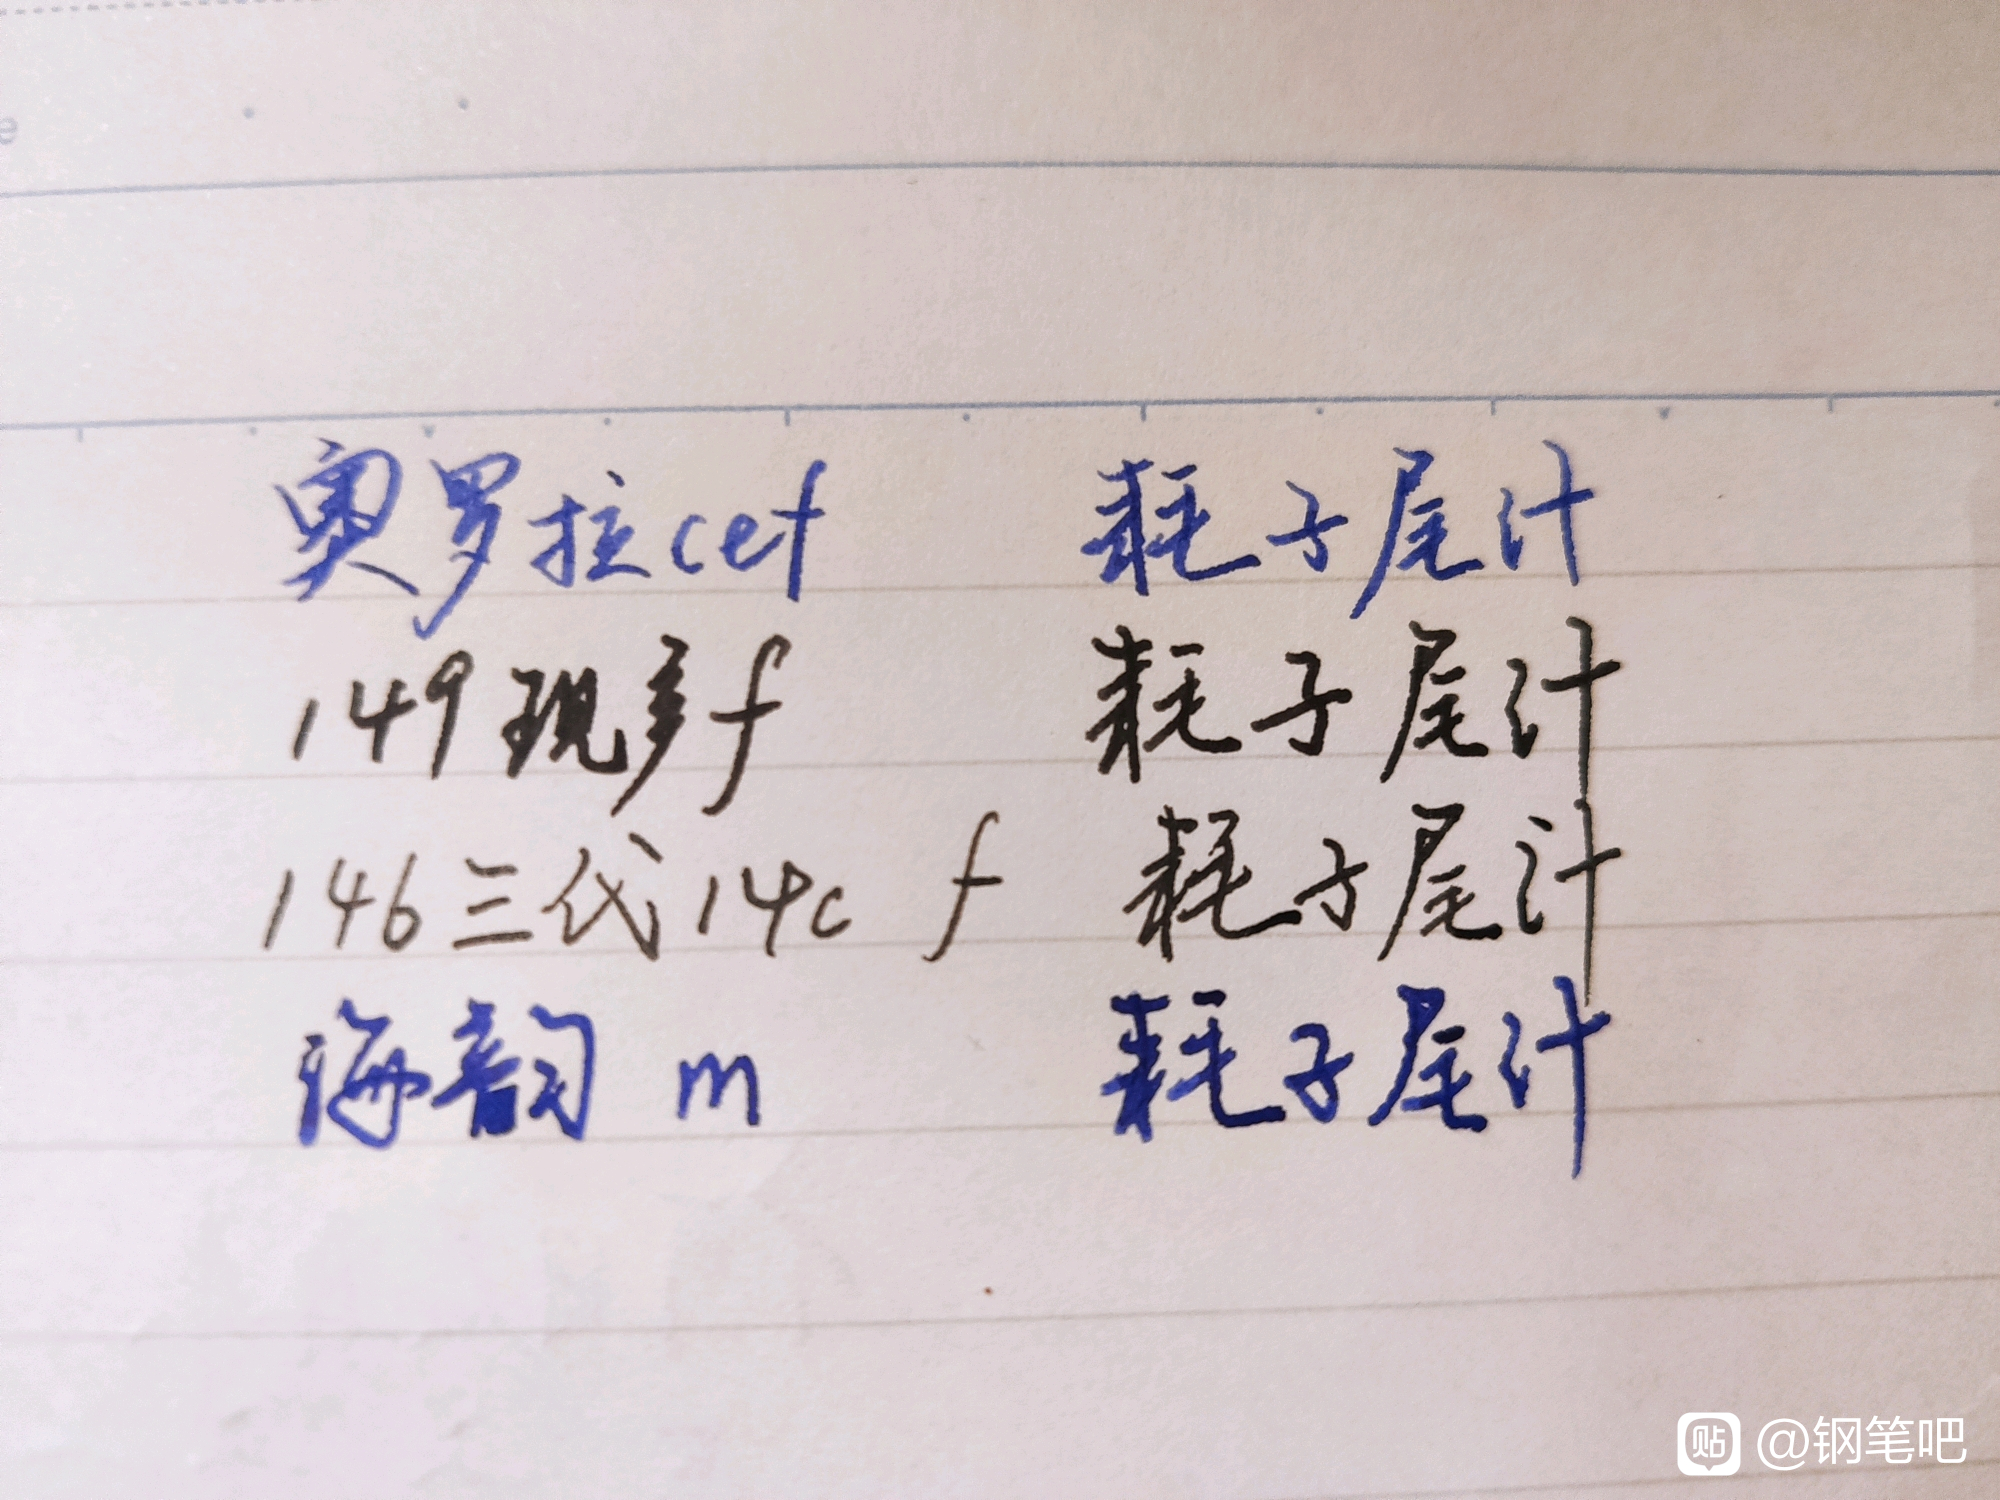 e
奥罗拉cef 耗子尾汁
149现多f 耗子尾汁
146三代14c f 耗子尾汁
海韵 m 耗子尾汁
贴 @钢笔吧